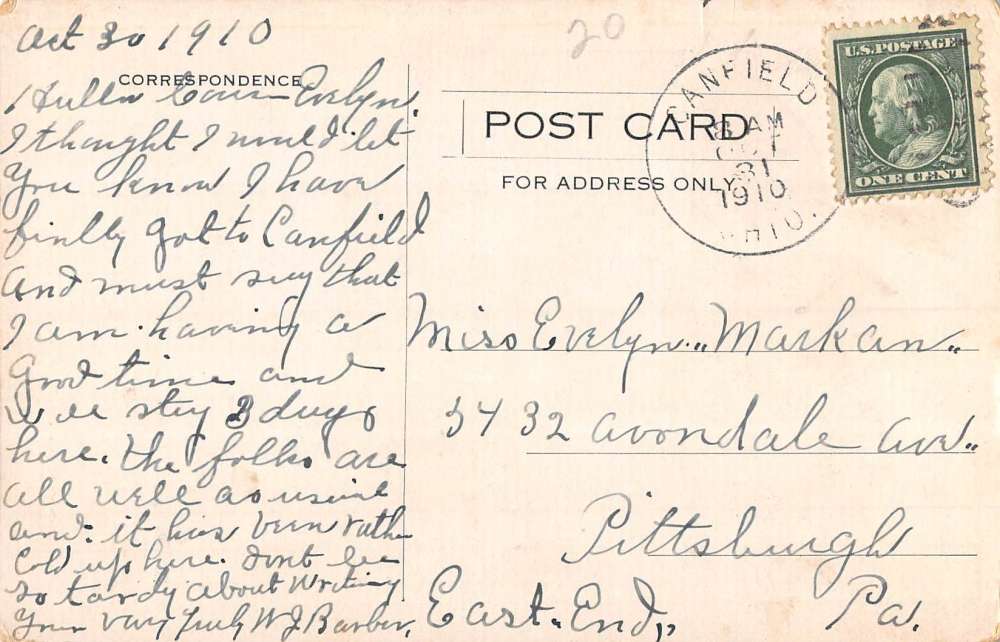 Oct 30 1910
20
CORRESPONDENCE
Hullo Cousin Evelyn.
I thought I would let
You know I have
finlly got to Canfield
and must say that
I am having a
Good time and
will stay 3 days
here. the folks are
all well as usual
and it has been rather
Cold up here. dont be
so tardy about writing
Your Very Truly W J Barber.
POST CARD
FOR ADDRESS ONLY
CANFIELD
8 AM
OCT
31
1910
OHIO.
U.S. POSTAGE
ONE CENT
Miss Evelyn Markan
5432 Avondale Ave
Pittsburgh
East End, Pa.